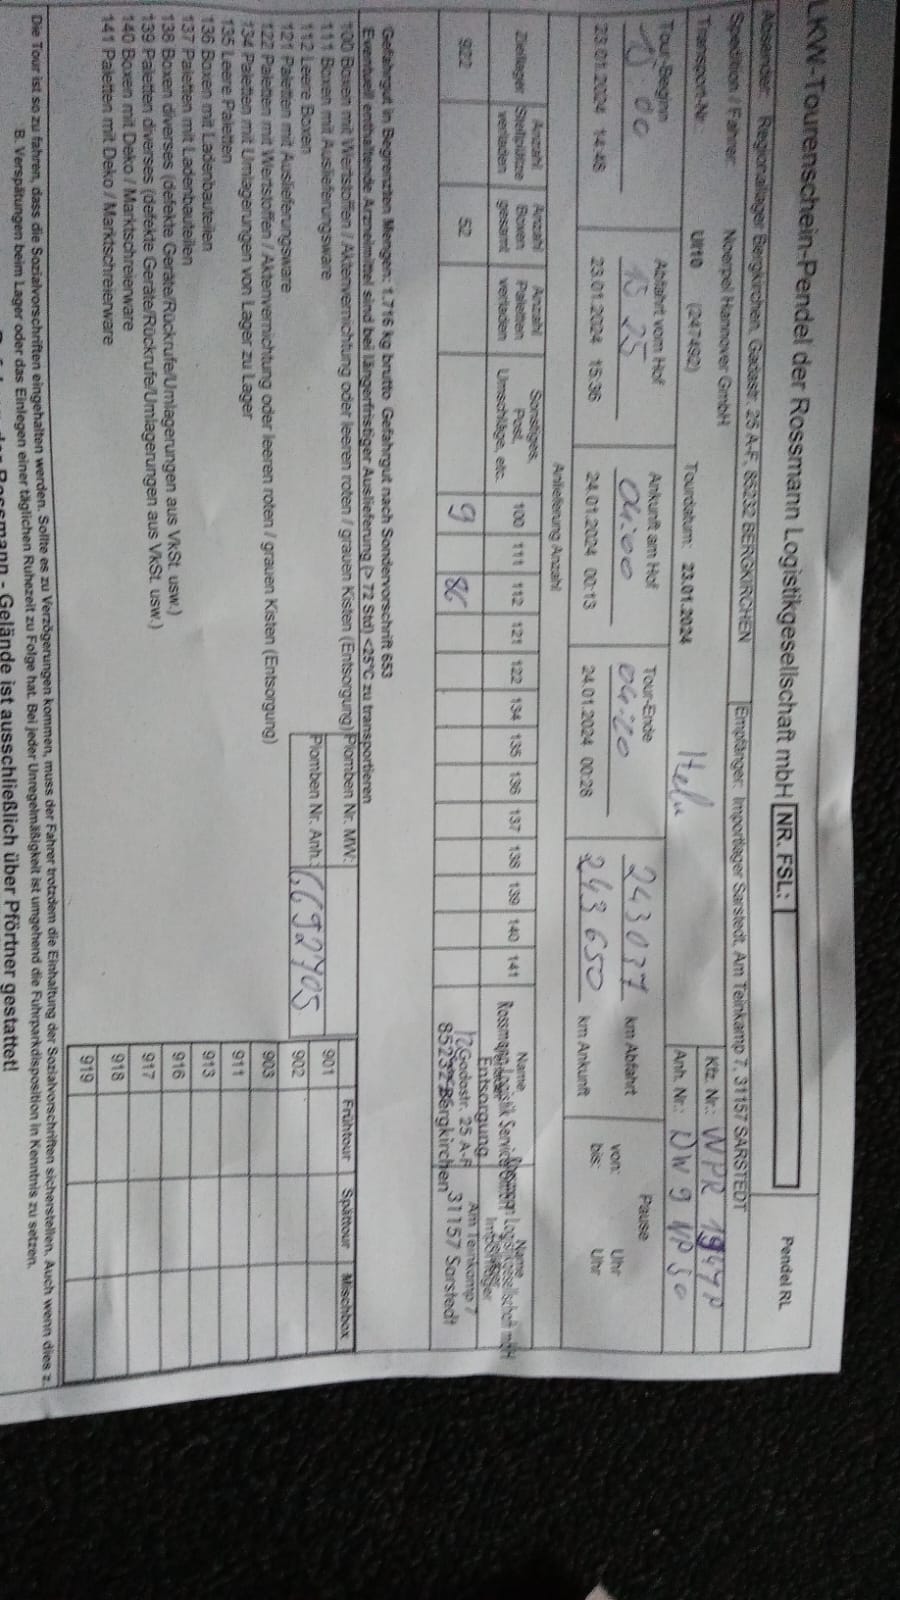 LKW-Tourenschein-Pendel der Rossmann Logistikgesellschaft mbH NR. FSL: Pendel RL
Absender: Regionallager Bergkirchen, Gadastr. 25 A-F, 85232 BERGKIRCHEN Empfänger: Importlager Sarstedt, Am Teinkamp 7, 31157 SARSTEDT
Spedition / Fahrer Noerpel Hannover GmbH Kfz. Nr.: WPR
Transport-Nr.: (247492) Tourdatum: 23.01.2024 Anh. Nr.:
Tour-Beginn Abfahrt vom Hof Ankunft am Hof Tour-Ende Pause
15 00 15 25 04:00 04:20 243 037 km Abfahrt von: Uhr
23.01.2024 14:48 23.01.2024 15:36 24.01.2024 00:13 24.01.2024 00:28 243 650 km Ankunft bis: Uhr
Anlieferung Anzahl
Ziellager Anzahl Stellplätze verladen Anzahl Boxen gesamt Anzahl Paletten verladen Sonstiges, Post, Umschläge, etc. 100 111 112 121 122 134 135 136 137 138 139 140 141 Name Name
922 52 9 86
Entsorgung
Gadastr. 25 A-F Am Teinkamp 7
85232 Bergkirchen 31157 Sarstedt
Gefahrgut in Begrenzten Mengen: 1.716 kg brutto Gefahrgut nach Sondervorschrift 653
Eventuell enthaltende Arzneimittel sind bei längerfristiger Auslieferung (> 72 Std) <25°C zu transportieren
100 Boxen mit Wertstoffen / Aktenvernichtung oder leeren roten / grauen Kisten (Entsorgung)
111 Boxen mit Auslieferungsware
112 Leere Boxen
121 Paletten mit Auslieferungsware
122 Paletten mit Wertstoffen / Aktenvernichtung oder leeren roten / grauen Kisten (Entsorgung)
134 Paletten mit Umlagerungen von Lager zu Lager
135 Leere Paletten
136 Boxen mit Ladenbauteilen
137 Paletten mit Ladenbauteilen
138 Boxen diverses (defekte Geräte/Rückrufe/Umlagerungen aus VkSt. usw.)
139 Paletten diverses (defekte Geräte/Rückrufe/Umlagerungen aus VkSt. usw.)
140 Boxen mit Deko / Marktschreierware
141 Paletten mit Deko / Marktschreierware
Plomben Nr. MW:
Plomben Nr. Anh.:
Frühtour Spättour Mischbox
901
902
903
911
913
916
917
918
919
Die Tour ist so zu fahren, dass die Sozialvorschriften eingehalten werden. Sollte es zu Verzögerungen kommen, muss der Fahrer trotzdem die Einhaltung der Sozialvorschriften sicherstellen. Auch wenn dies z.
B. Verspätungen beim Lager oder das Einlegen einer täglichen Ruhezeit zu Folge hat. Bei jeder Unregelmäßigkeit ist umgehend die Fuhrparkdisposition in Kenntnis zu setzen.
Rossmann - Gelände ist ausschließlich über Pförtner gestattet!